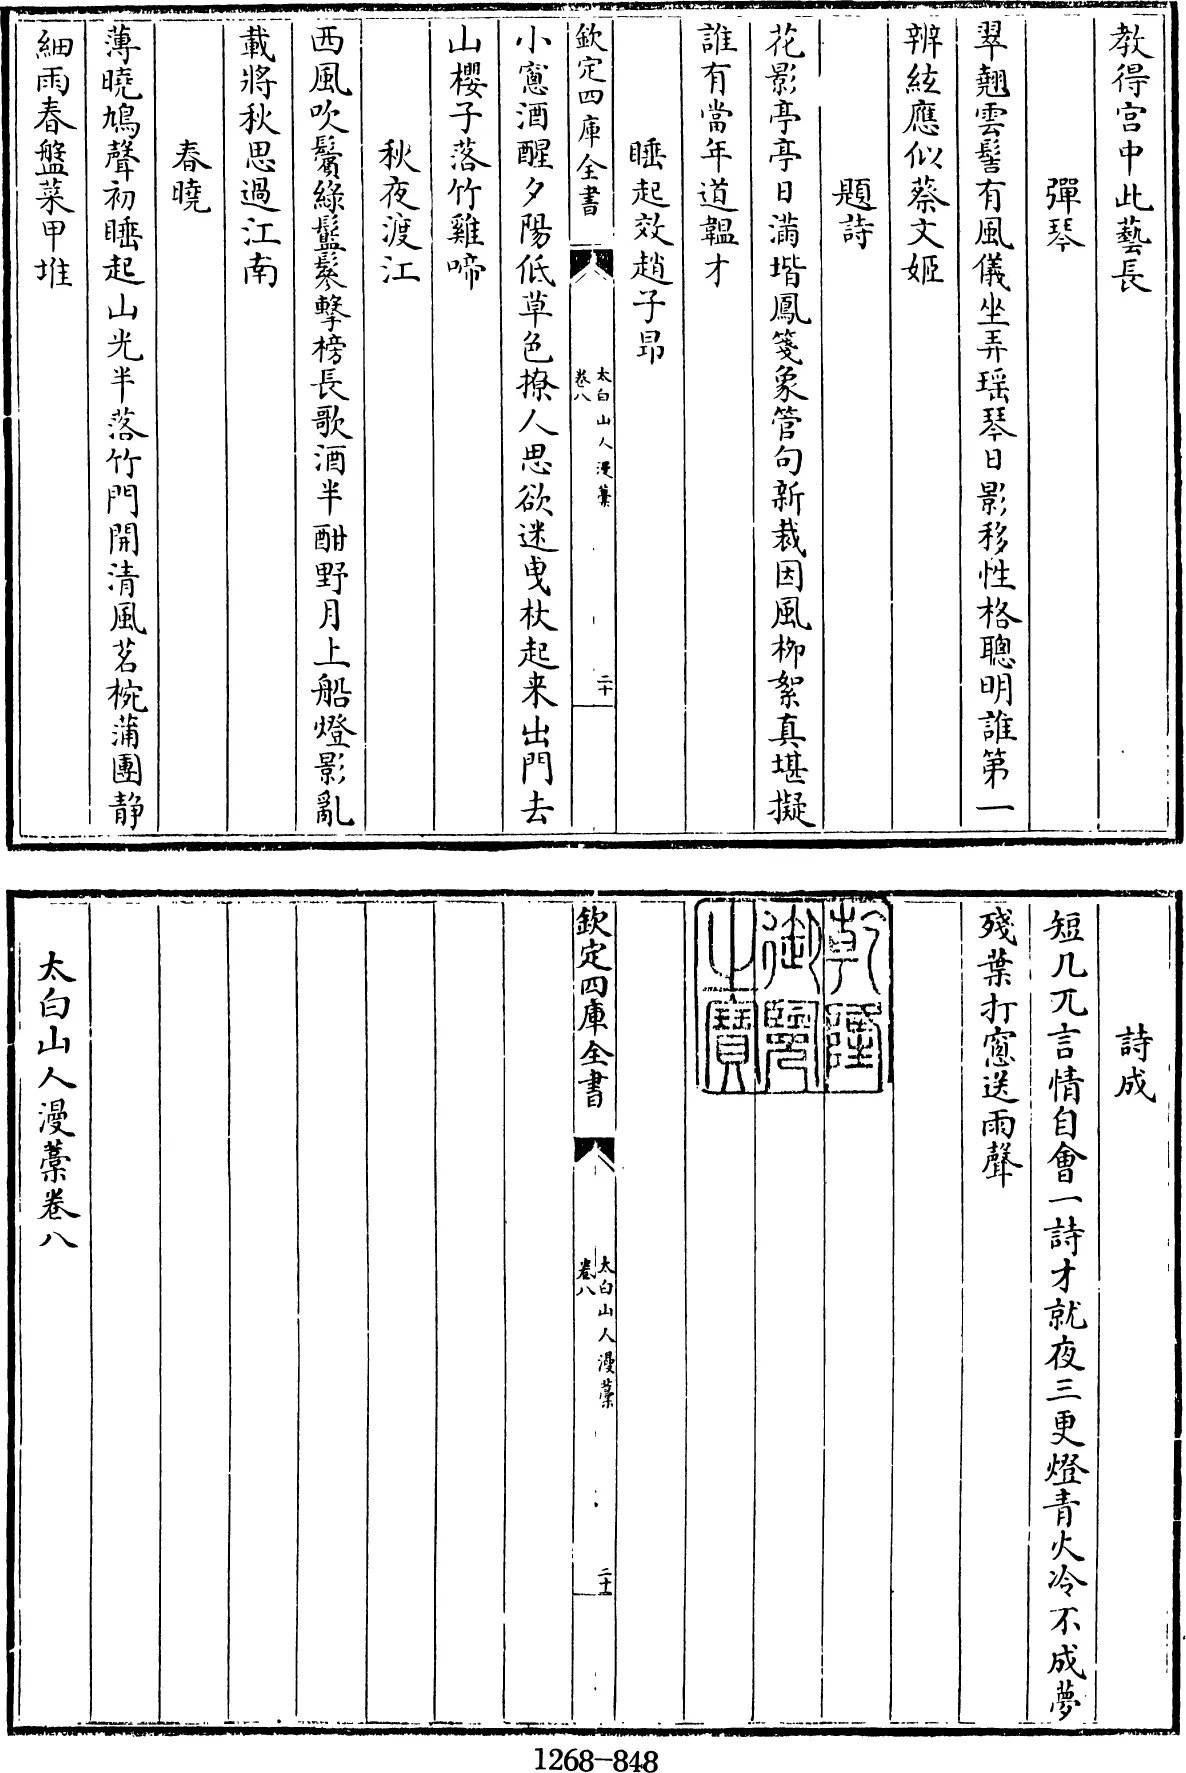 教得宫中此藝長
彈琴
翠翹雲髻有風儀坐弄瑶琴日影移性格聰明誰第一
辨絃應似蔡文姬
題詩
花影亭亭日滿堦鳳箋象管句新裁因風柳絮真堪擬
誰有當年道韞才
睡起效趙子昂
欽定四庫全書
太白山人漫藁
卷八
二十
小窻酒醒夕陽低草色撩人思欲迷曵杖起来出門去
山櫻子落竹雞啼
秋夜渡江
西風吹鬢綠鬖鬖擊榜長歌酒半酣野月上船燈影亂
載將秋思過江南
春曉
薄曉鳩聲初睡起山光半落竹門開清風茗椀蒲團静
細雨春盤菜甲堆
詩成
短几兀言情自會一詩才就夜三更燈青火冷不成夢
殘葉打窻送雨聲
乾隆
御覽
之寶
欽定四庫全書
太白山人漫藁
卷八
二十一
太白山人漫藁卷八
1268-848